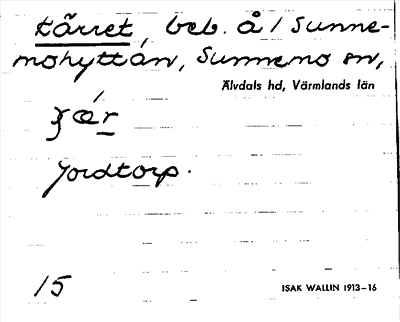 tärret, beb. å / Sunne-
mohyttan, Sunnemo sn,
Älvdals hd, Värmlands län
Jordtorp.
15
ISAK WALLIN 1913–16